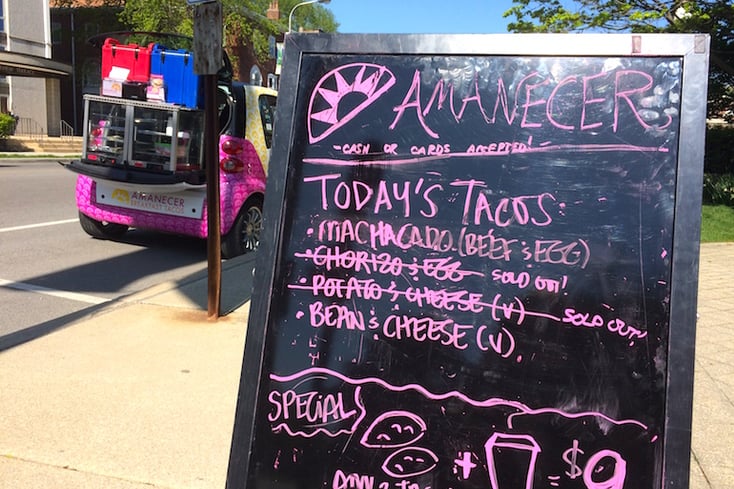 AMANECER
- CASH OR CARDS ACCEPTED! -
TODAY'S TACOS:
• MACHACADO (BEEF & EGG)
• CHORIZO & EGG SOLD OUT!
• POTATO & CHEESE (V) SOLD OUT!
• BEAN & CHEESE (V).
SPECIAL
+ = $9
ANY 2
AMANECER
BREAKFAST TACOS